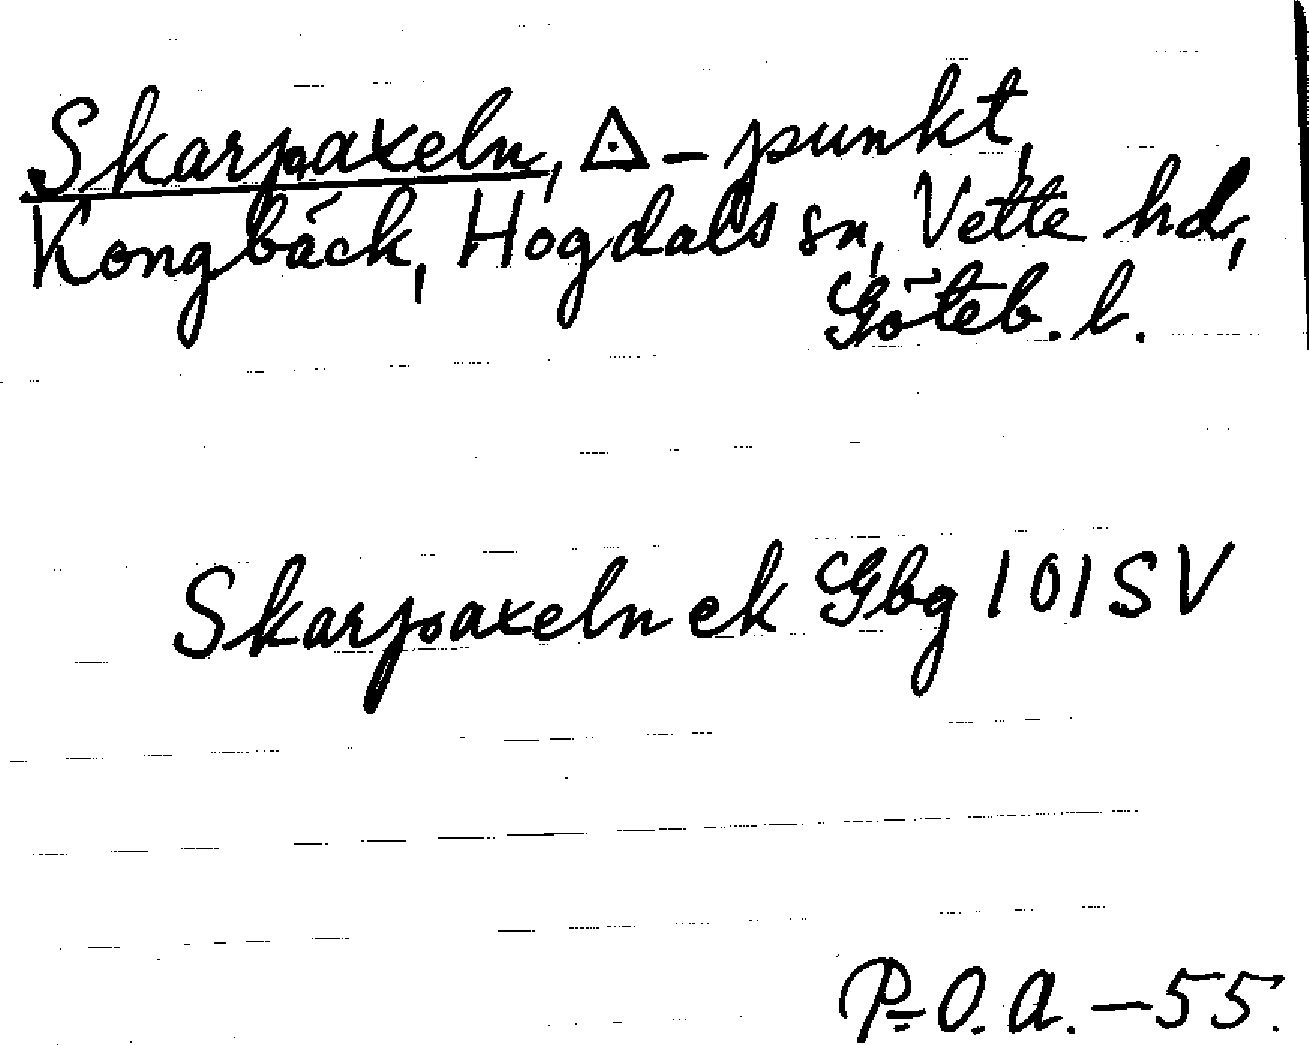 Skarpaxeln, ◬-punkt,
Kongbäck, Hogdals sn, Vette hd,
Göteb. l.
Skarpaxeln ek Gbg 101SV
P-O. A. -55.